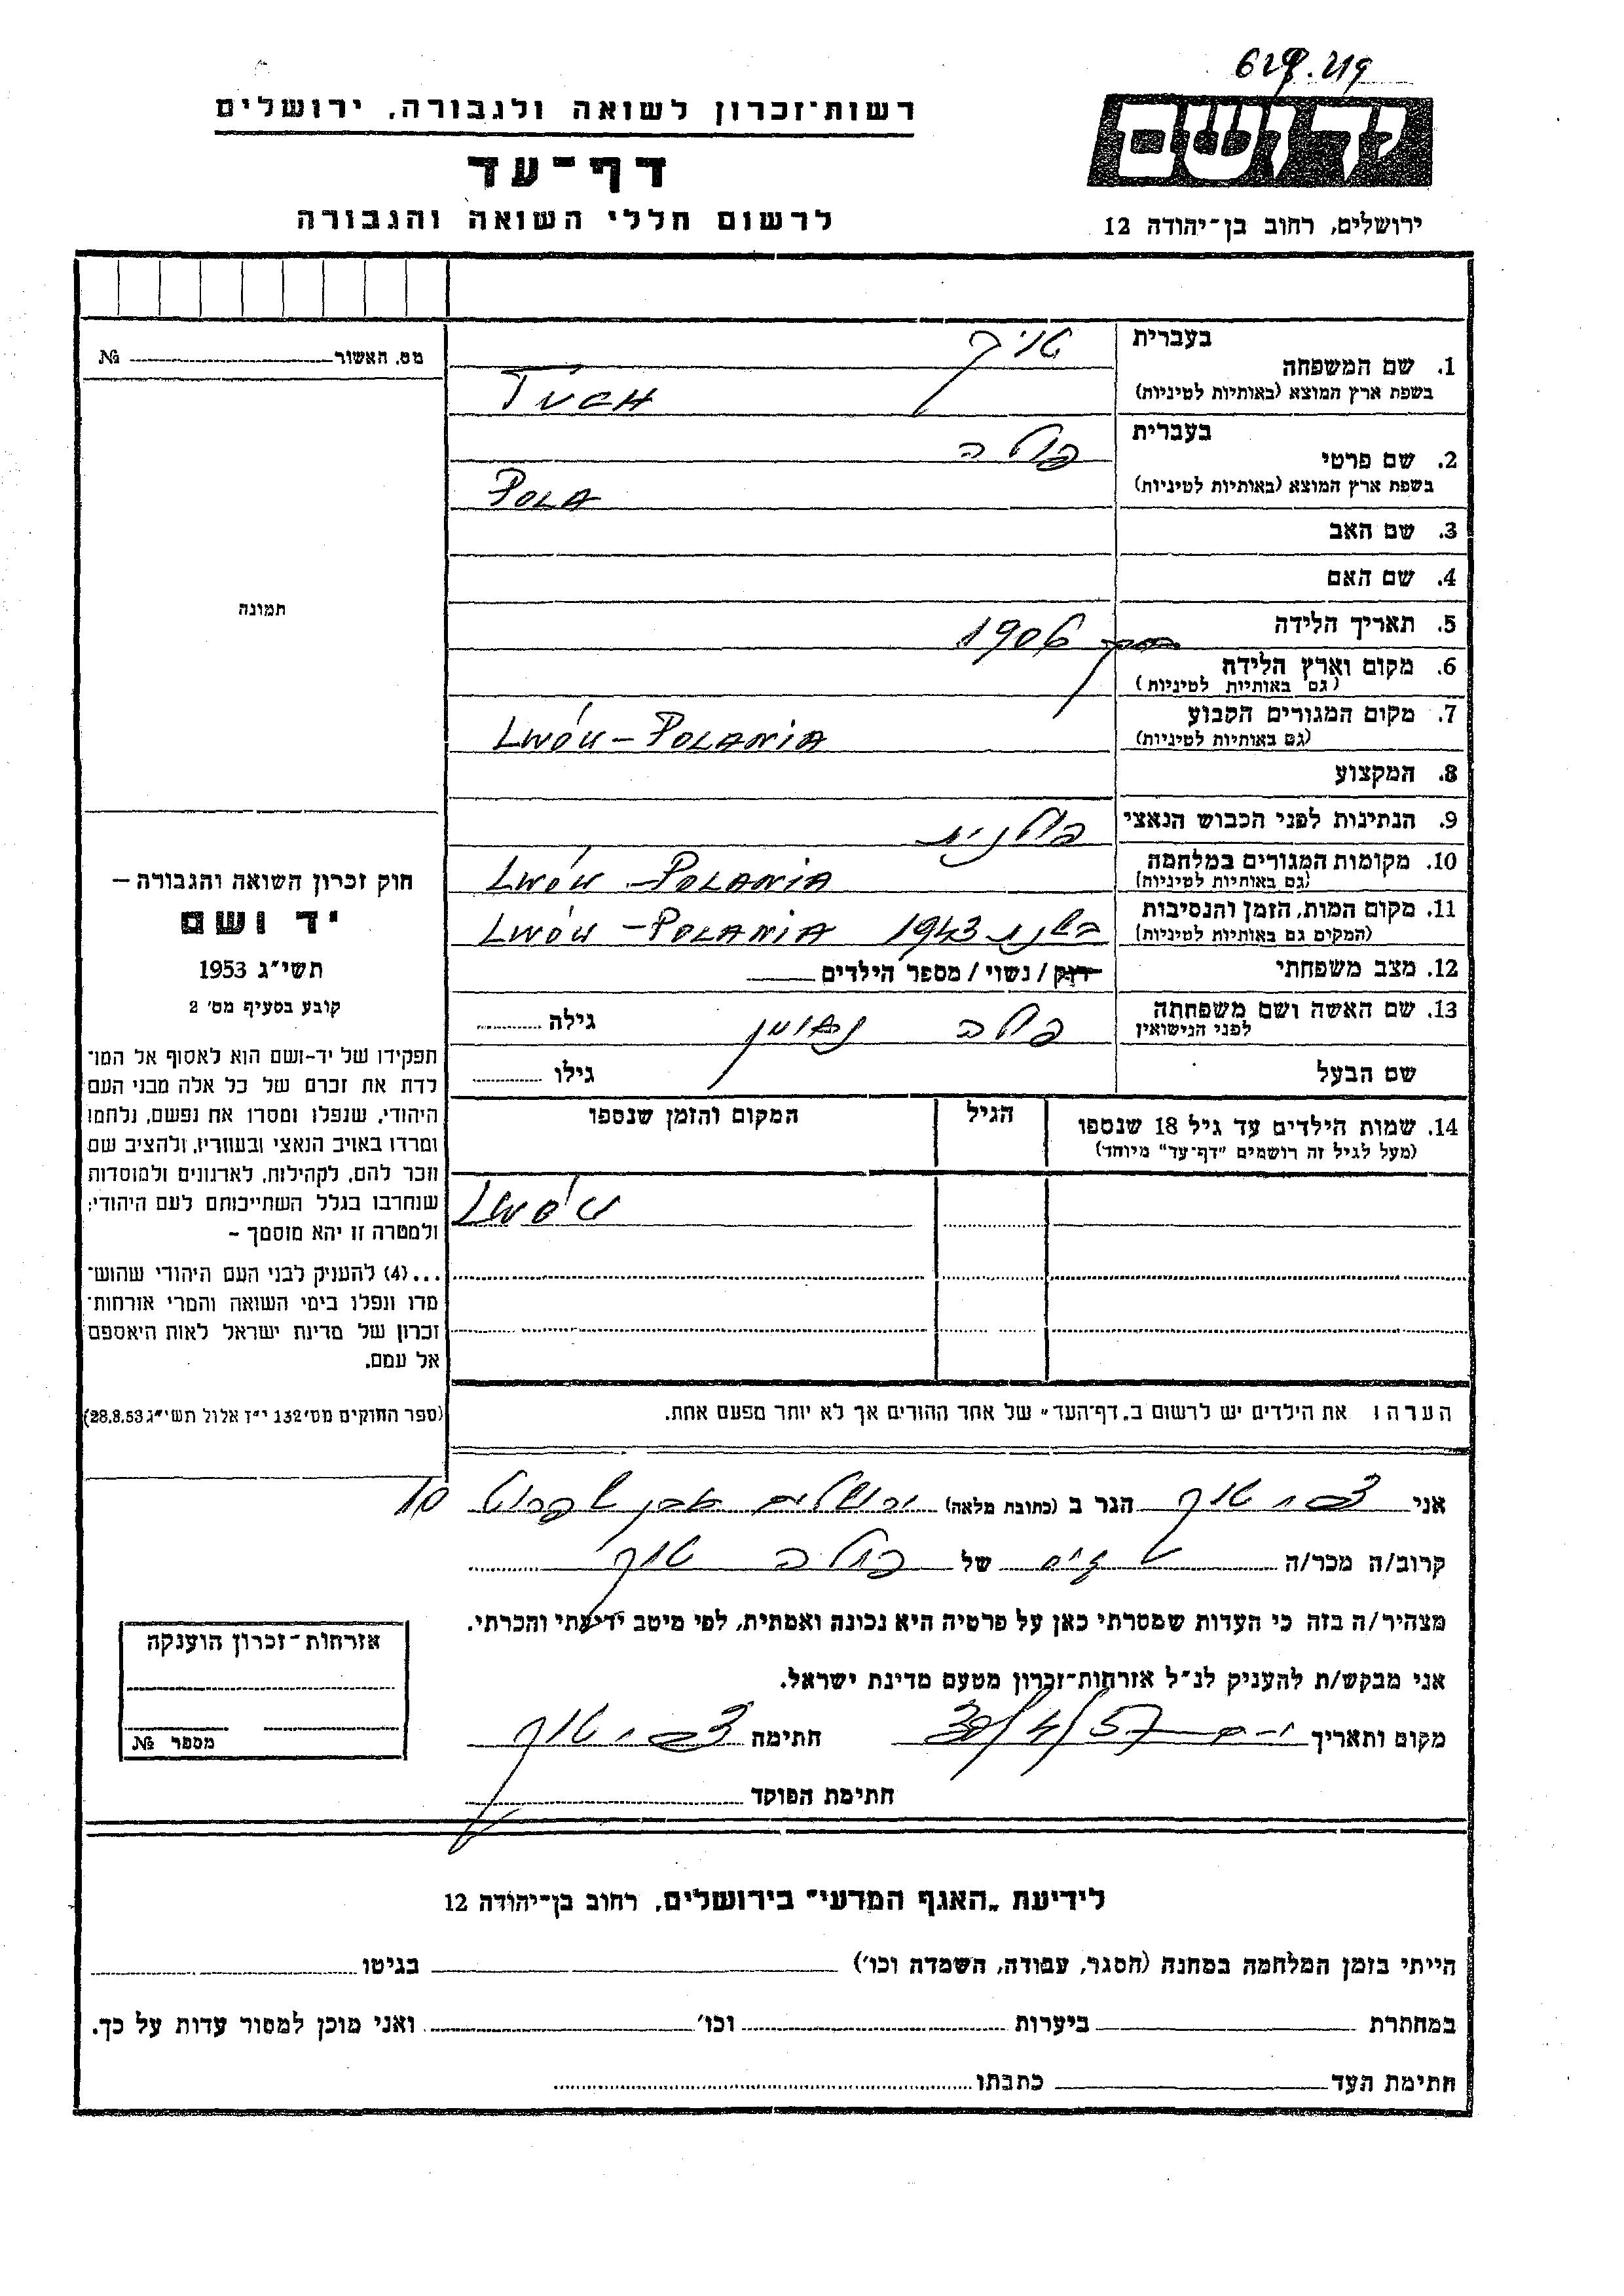 629.219
ידושם
ירושלים, רחוב בן-יהודה 12
רשות-זכרון לשואה ולגבורה, ירושלים
דף-עד
לרשום חללי השואה והגבורה
1. שם המשפחה
בעברית טיך
בשפת ארץ המוצא (באותיות לטיניות) TUCH
2. שם פרטי
בעברית פולה
בשפת ארץ המוצא (באותיות לטיניות) POLA
3. שם האב
4. שם האם
5. תאריך הלידה 1906
6. מקום וארץ הלידה
(גם באותיות לטיניות)
7. מקום המגורים הקבוע
(גם באותיות לטיניות) LWÓW - POLANIA
8. המקצוע
9. הנתינות לפני הכבוש הנאצי פולנית
10. מקומות המגורים במלחמה
(גם באותיות לטיניות) LWÓW - POLANIA
11. מקום המות, הזמן והנסיבות
(המקום גם באותיות לטיניות) בשנת 1943 LWÓW - POLANIA
12. מצב משפחתי רוק / נשוי / מספר הילדים
13. שם האשה ושם משפחתה
לפני הנישואין פולה גילה
שם הבעל גילו
14. שמות הילדים עד גיל 18 שנספו
(מעל לגיל זה רושמים "דף-עד" מיוחד)
הגיל
המקום והזמן שנספו
LWÓW
הערה: את הילדים יש לרשום ב„דף-העד" של אחד ההורים אך לא יותר מפעם אחת.
מס. האשור № 
תמונה
חוק זכרון השואה והגבורה –
יד ושם
תשי"ג 1953
קובע בסעיף מס' 2
תפקידו של יד-ושם הוא לאסוף אל המו־
לדת את זכרם של כל אלה מבני העם
היהודי, שנפלו ומסרו את נפשם, נלחמו
ומרדו באויב הנאצי ובעוזריו, ולהציב שם
וזכר להם, לקהילות, לארגונים ולמוסדות
שנחרבו בגלל השתייכותם לעם היהודי;
ולמטרה זו יהא מוסמך –
...(4) להעניק לבני העם היהודי שהוש־
מדו ונפלו בימי השואה והמרי אזרחות־
זכרון של מדינת ישראל לאות היאספם
אל עמם.
(ספר החוקים מס' 132 י"ז אלול תשי"ג 28.8.53)
אני צבי טוך הגר ב (כתובת מלאה) ירושלים אבן שפרוט 10
קרוב/ה מכר/ה של פולה טוך
מצהיר/ה בזה כי העדות שמסרתי כאן על פרטיה היא נכונה ואמתית, לפי מיטב ידיעתי והכרתי.
אני מבקש/ת להעניק לנ"ל אזרחות-זכרון מטעם מדינת ישראל.
מקום ותאריך י-ם 30/4/57 חתימה צבי טוך
חתימת הפוקד
אזרחות-זכרון הוענקה
מספר №
לידיעת „האגף המדעי" בירושלים, רחוב בן-יהודה 12
הייתי בזמן המלחמה במחנה (הסגר, עבודה, השמדה וכו') בגיטו
במחתרת ביערות וכו' ואני מוכן למסור עדות על כך.
חתימת העד כתבתו